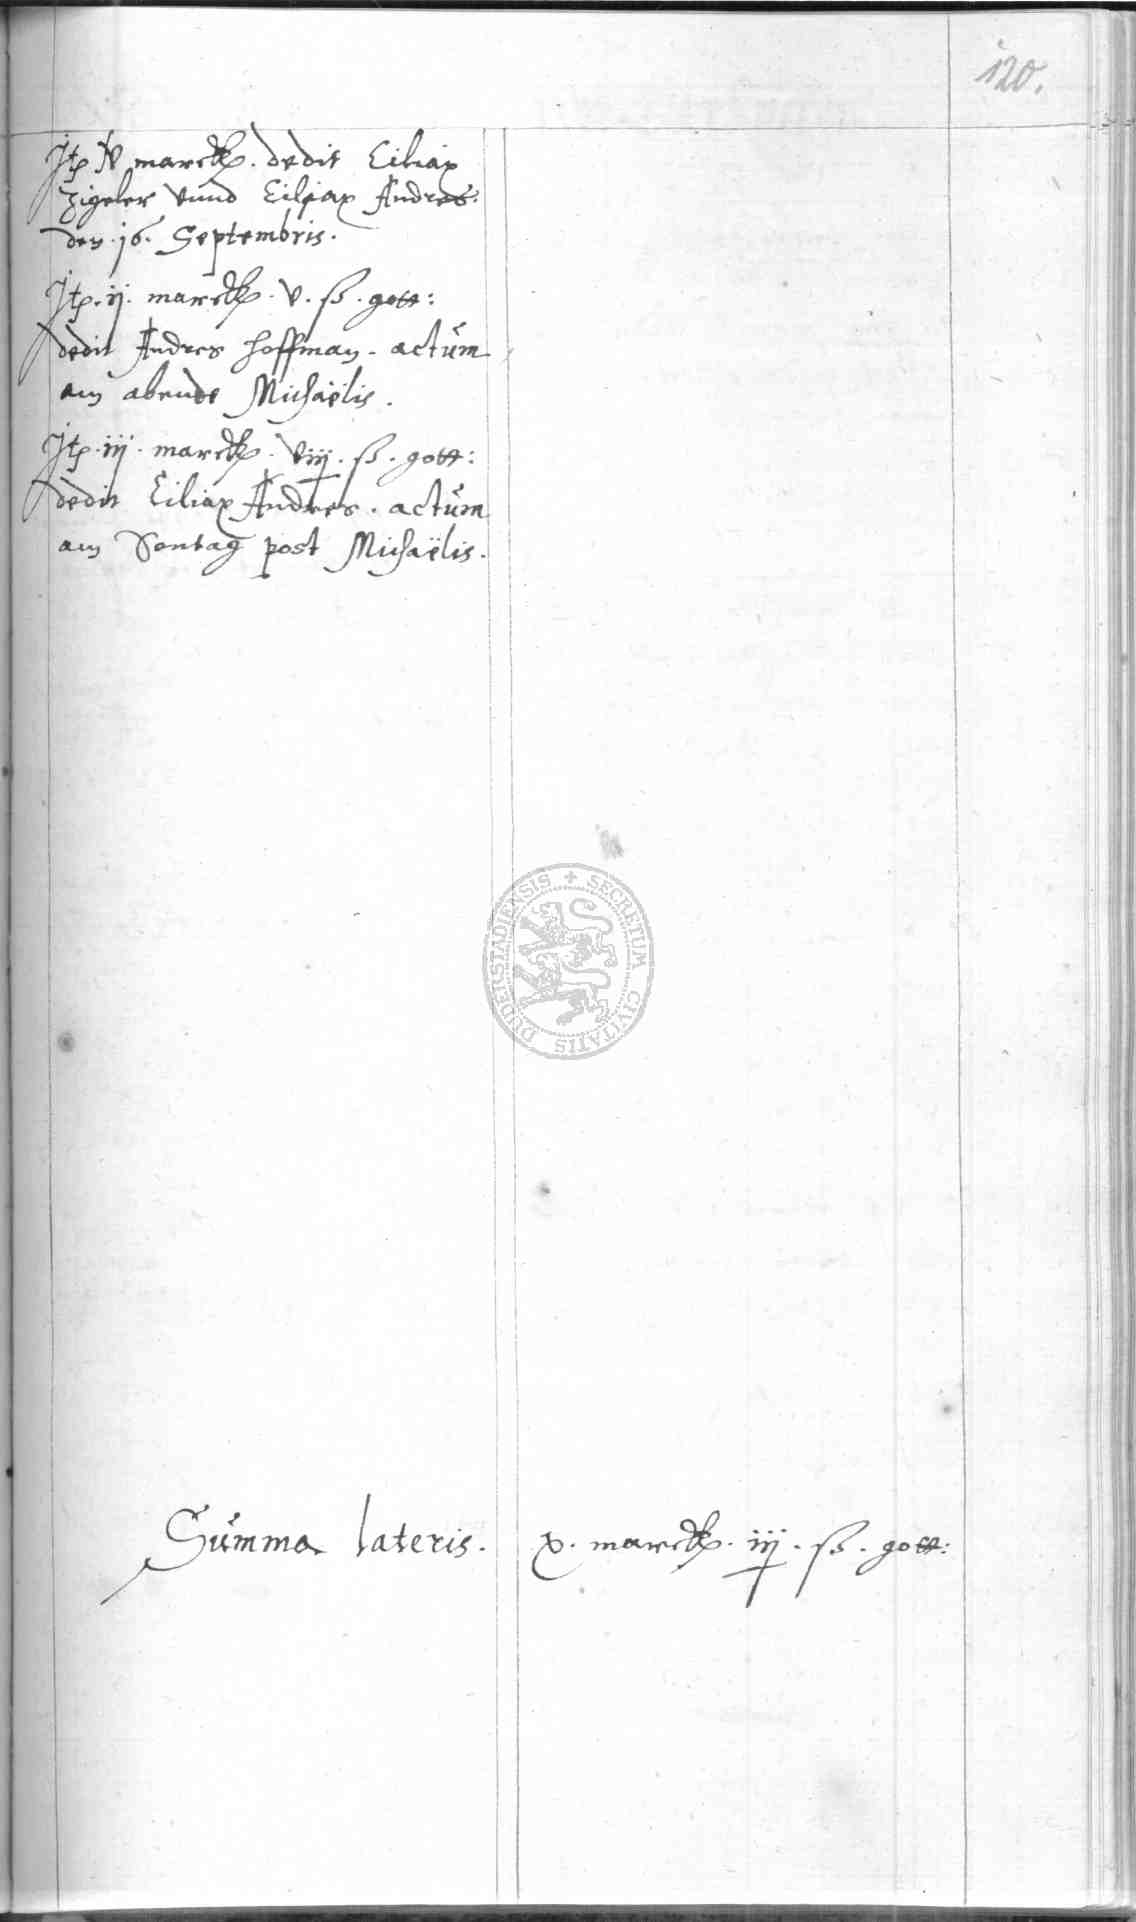 120.
Jtp v marckx. dedit Ciliax
Zigeler vnnd Ciliax Andres.
den .16. Septembris.
Jtp. ij. marckx. v. ß. gott:
dedit Andres Hoffman. actum
am abende Michaëlis.
Jtp. iij. marckx. viij. ß. gott:
dedit Ciliax Andres. actum
am Sontag post Michaëlis.
SECRETUM CIVITATIS DUDERSTADIENSIS
Summa lateris. x. marckx. iij. ß. gott: